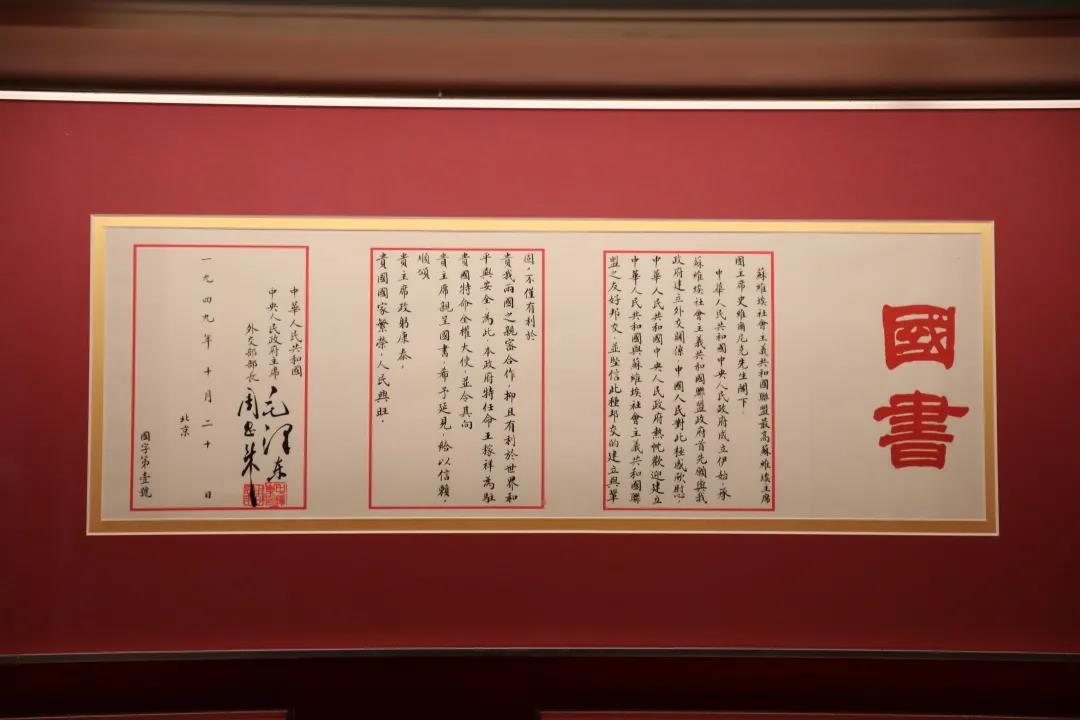 國書
蘇維埃社會主義共和國聯盟最高蘇維埃主席
團主席史維爾尼克先生閣下．
中華人民共和國中央人民政府成立伊始，承
蘇維埃社會主義共和國聯盟政府首先願與我
政府建立外交關係，中國人民對此極感欣慰，
中華人民共和國中央人民政府熱忱歡迎建立
中華人民共和國與蘇維埃社會主義共和國聯
盟之友好邦交．並堅信此種邦交的建立與鞏
固，不僅有利於
貴我兩國之親密合作，抑且有利於世界和
平與安全．為此，本政府特任命王稼祥為駐
貴國特命全權大使，並令其向
貴主席親呈國書，希予延見，給以信賴．
順頌
貴主席政躬康泰，
貴國國家繁榮，人民興旺．
中華人民共和國
中央人民政府主席 毛澤東
外交部部長 周恩來
一九四九年十月二十日
北京
國字第壹號